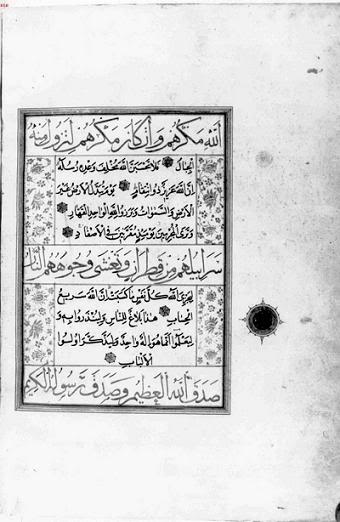 الله مكرهم وان كان مكرهم لتزول منه
الجبال فلا تحسبن الله مخلف وعده رسله
ان الله عزيز ذو انتقام يوم تبدل الارض غير
الارض والسموات وبرزوا لله الواحد القهار
وترى المجرمين يومئذ مقرنين في الاصفاد
سرابيلهم من قطران وتغشى وجوههم النار
ليجزي الله كل نفس ما كسبت ان الله سريع
الحساب هذا بلاغ للناس ولينذروا به و
ليعلموا انما هو اله واحد وليذكر اولوا
الالباب
صدق الله العظيم وصدق رسوله الكريم